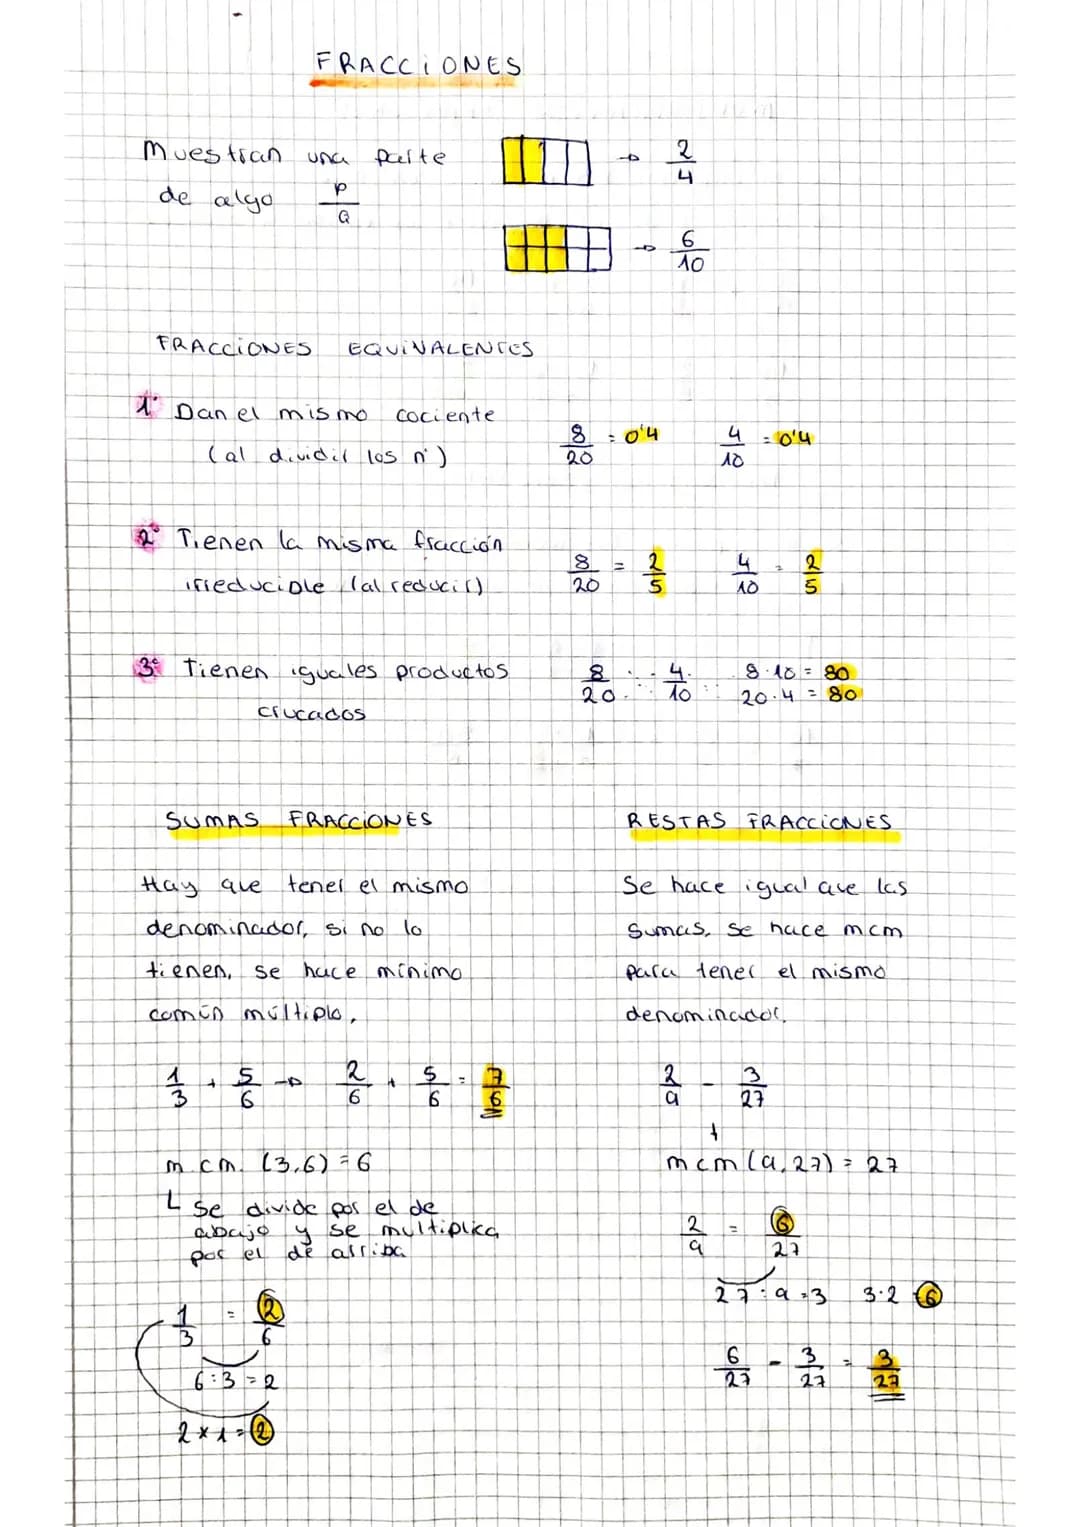 FRACCIONES
Muestran una parte
de algo p/Q
→ 2/4
→ 6/10
FRACCIONES EQUIVALENTES
1º Dan el mismo cociente
(al dividir los nº)
8/20 = 0'4 4/10 = 0'4
2º Tienen la misma fracción
irreducible (al reducir)
8/20 = 2/5 4/10 = 2/5
3º Tienen iguales productos
crucados
8/20 4/10
8·10 = 80
20·4 = 80
SUMAS FRACCIONES
Hay que tener el mismo
denominador, si no lo
tienen, se hace mínimo
común múltiplo,
1/3 + 5/6 → 2/6 + 5/6 = 7/6
m.cm. (3,6) = 6
└ se divide por el de
abajo y se multiplica
por el de arriba
1/3 = 2/6
6:3 = 2
2×1 = 2
RESTAS FRACCIONES
Se hace igual que las
sumas, se hace mcm
para tener el mismo
denominador.
2/9 - 3/27
mcm (9,27) = 27
2/9 = 6/27
27:9=3 3·2=6
6/27 - 3/27 = 3/27